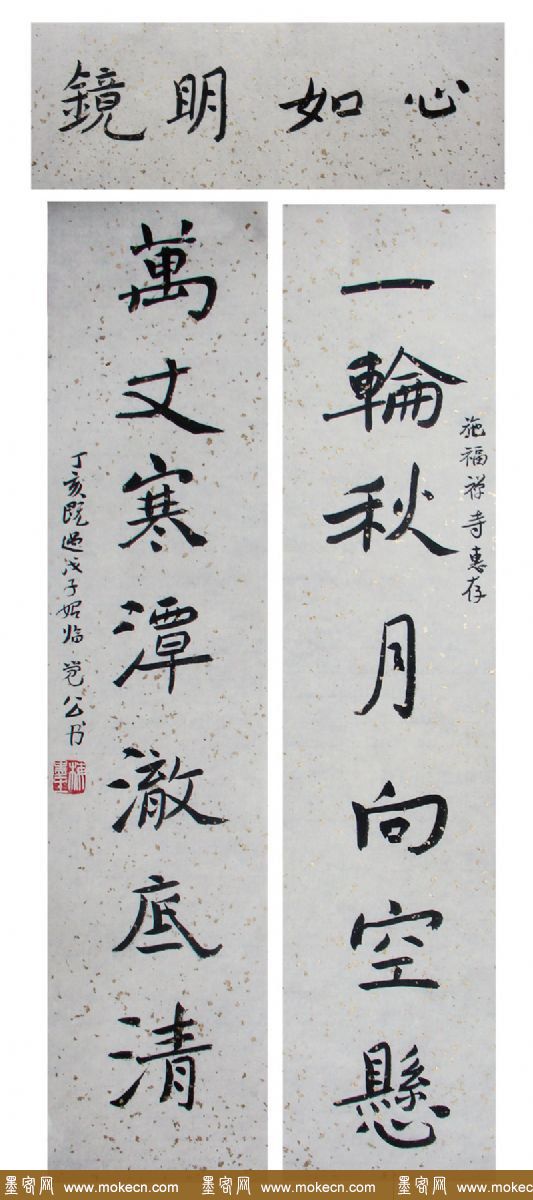 心如明鏡
一輪秋月向空懸
施福禅寺惠存
萬丈寒潭澈底清
丁亥既過戊子始临 觉公书
墨客网 www.mokecn.com 墨客网 www.mokecn.com 墨客网 www.mokecn.com